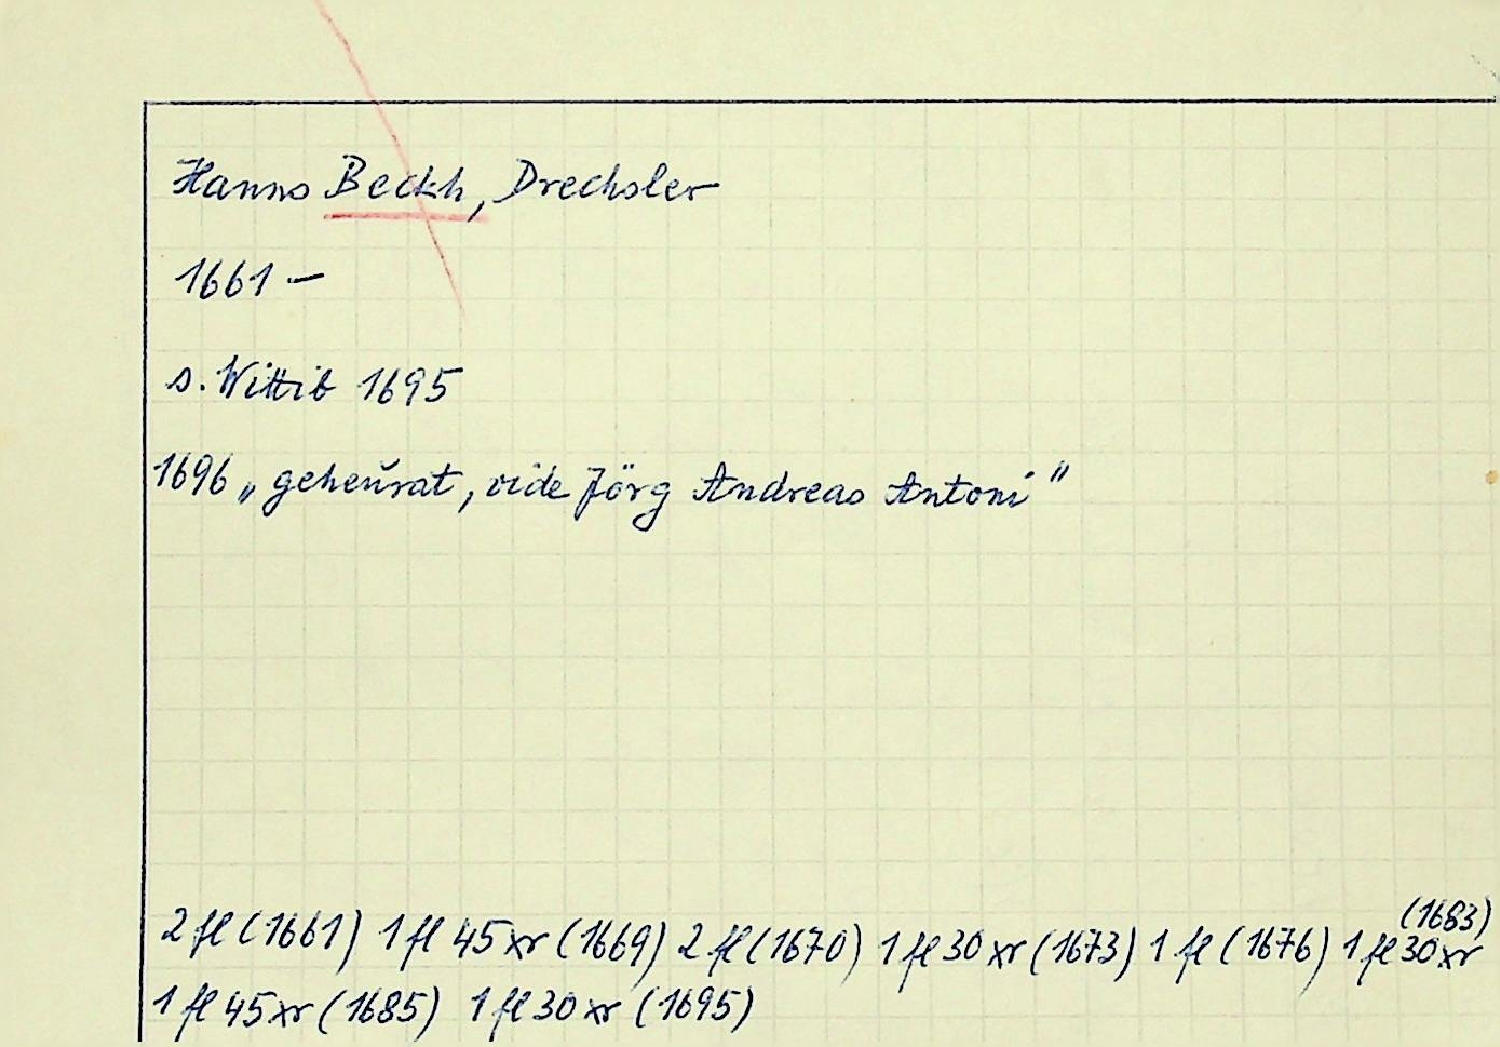 Hanns Beckh, Drechsler
1661 –
s. Wittib 1695
1696 „geheürat, vide Jörg Andreas Antoni"
2 fl (1661) 1 fl 45 xr (1669) 2 fl (1670) 1 fl 30 xr (1673) 1 fl (1676) 1 fl 30 xr (1683)
1 fl 45 xr (1685) 1 fl 30 xr (1695)